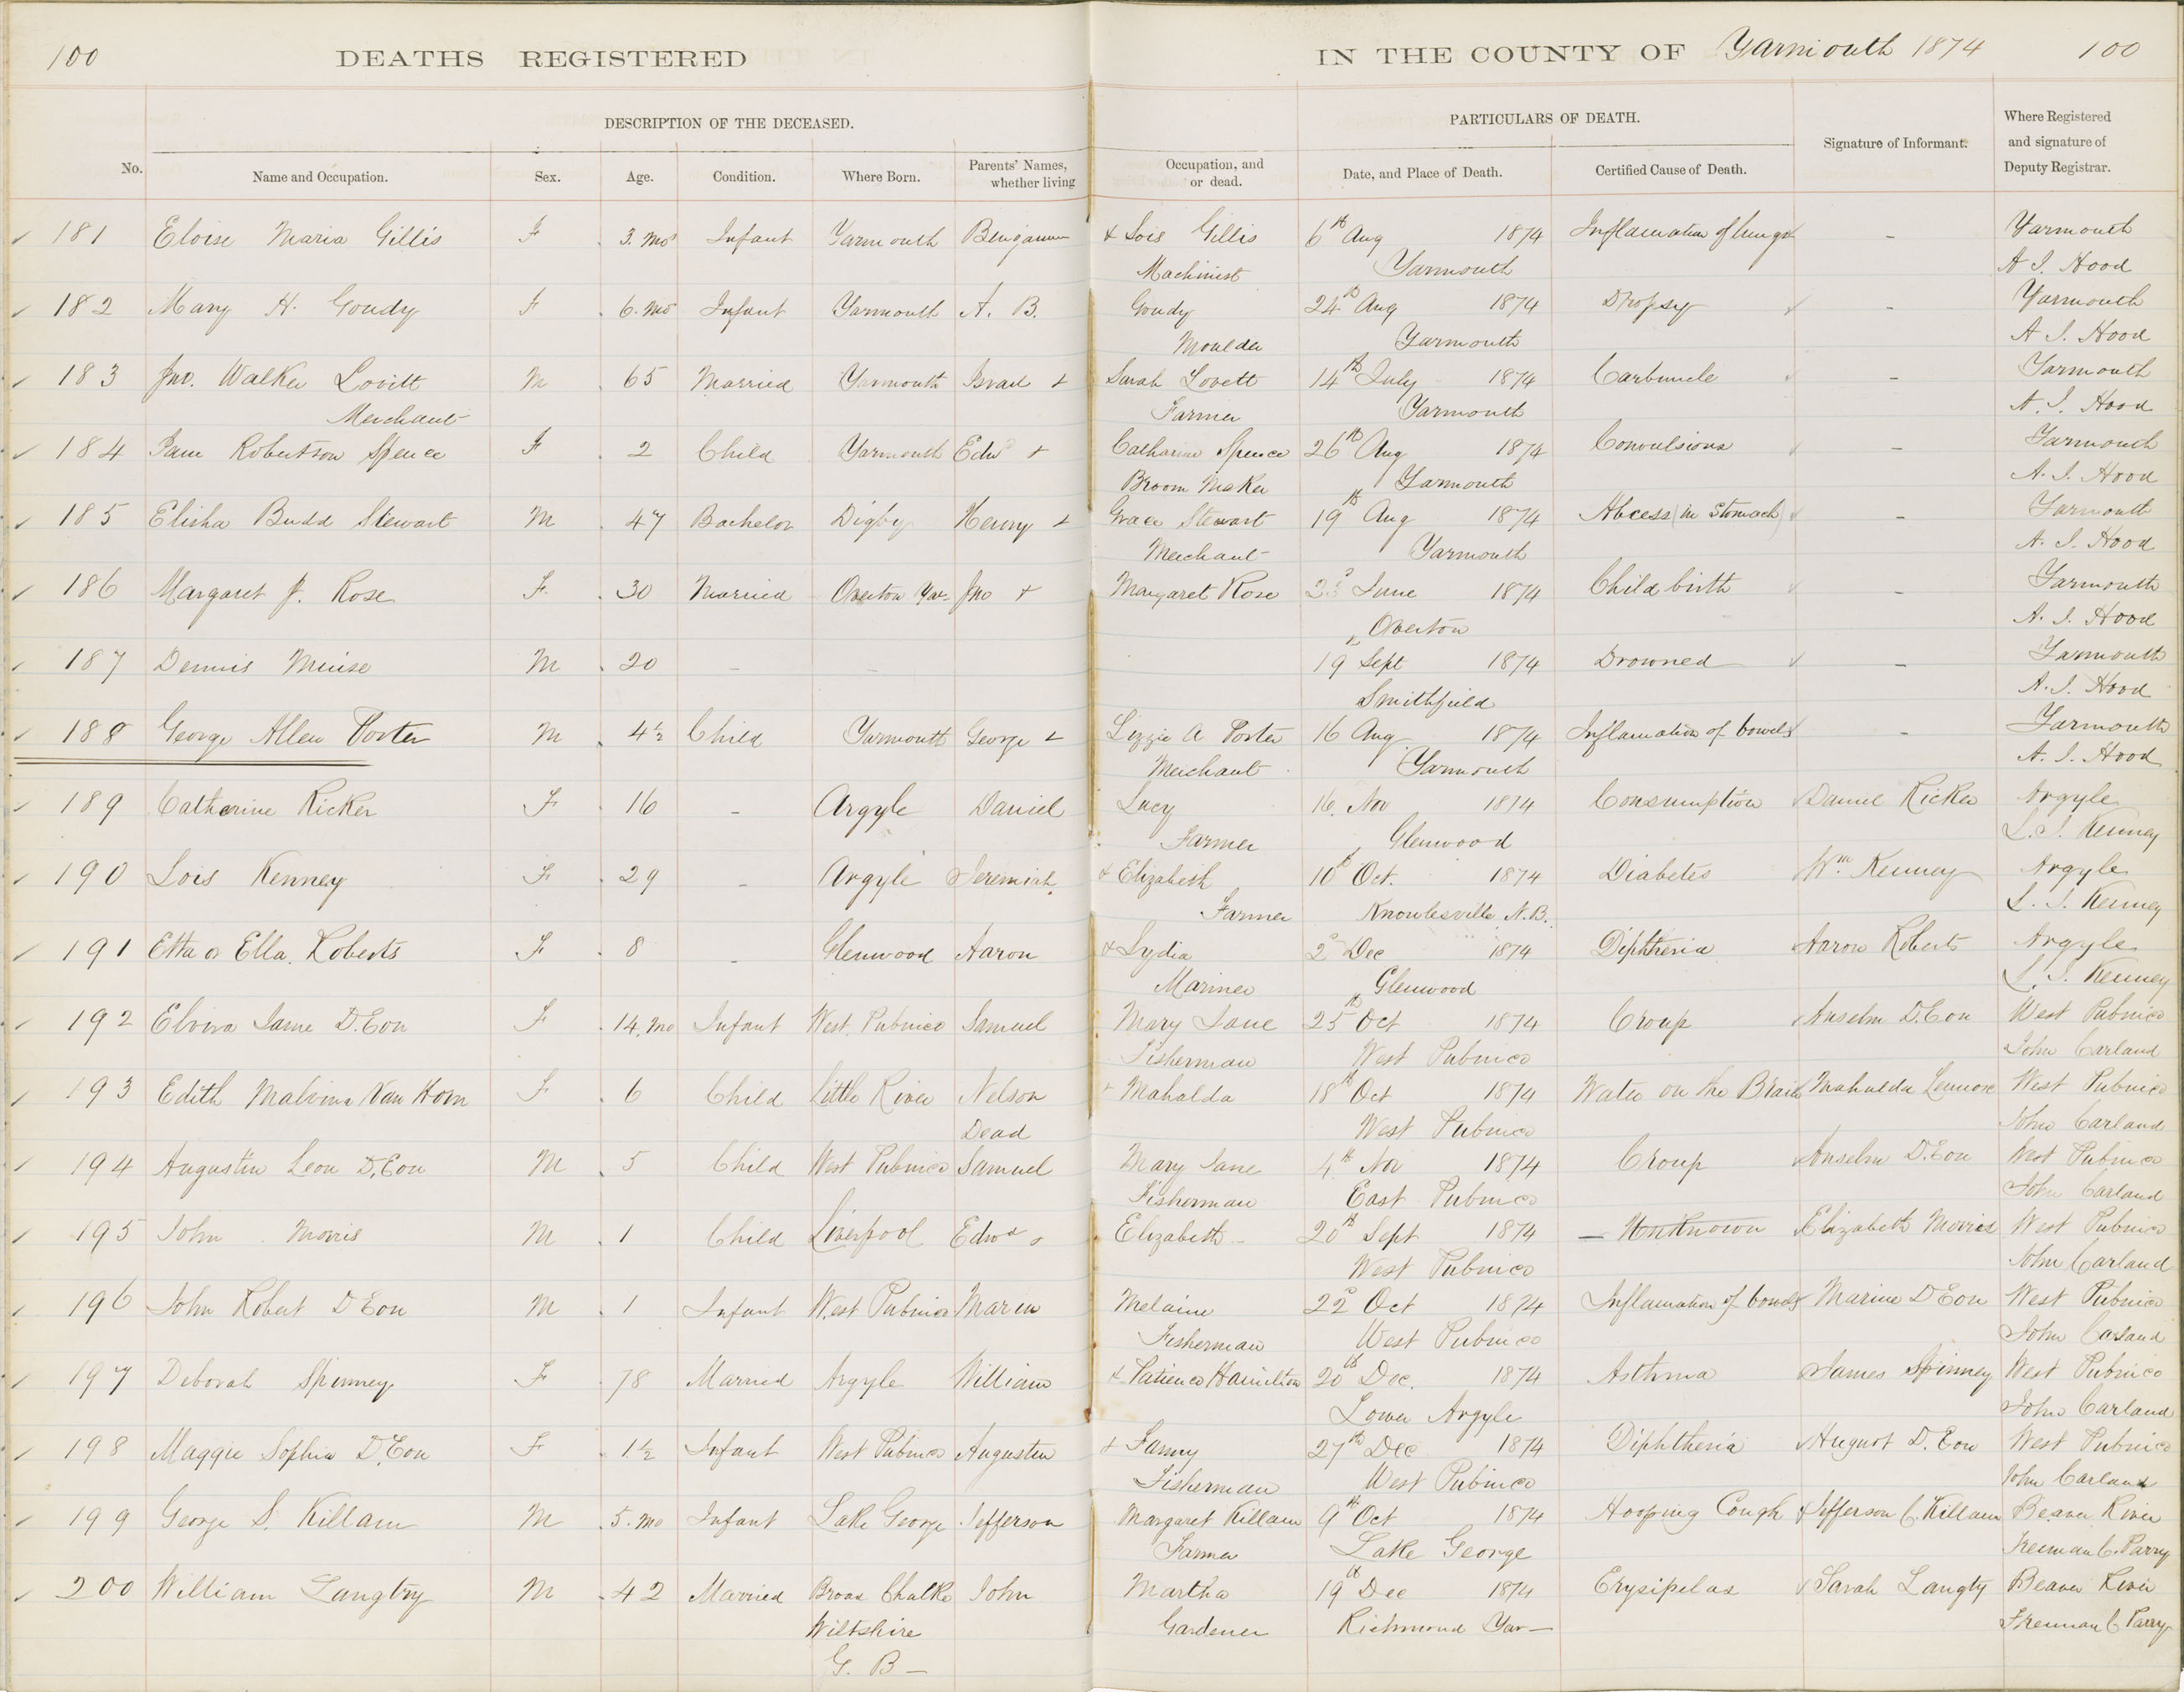 100 DEATHS REGISTERED IN THE COUNTY OF Yarmouth 1874 100
DESCRIPTION OF THE DECEASED. PARTICULARS OF DEATH. Signature of Informant. Where Registered and signature of Deputy Registrar.
No. Name and Occupation. Sex. Age. Condition. Where Born. Parents' Names, whether living Occupation, and or dead. Date, and Place of Death. Certified Cause of Death.
181 Eloise Maria Gillis F 3. Mos Infant Yarmouth Benjamin & Lois Gillis 6th Aug 1874 Inflamation of lungs - Yarmouth
Machinist Yarmouth A I. Hood
182 Mary H. Goudy F 6. Mos Infant Yarmouth A. B. Goudy 24th Aug 1874 Dropsy - Yarmouth
Moulder Yarmouth A I. Hood
183 Jno. Walker Lovitt M 65 Married Yarmouth Israel + Sarah Lovett 14th July 1874 Carbuncle - Yarmouth
Merchant Farmer Yarmouth A. I. Hood
184 Jane Robertson Spence F 2 Child Yarmouth Edwd + Catharine Spence 26th Aug 1874 Convulsions - Yarmouth
Broom Maker Yarmouth A. I. Hood
185 Elisha Budd Stewart M 47 Bachelor Digby Henry + Grace Stewart 19th Aug 1874 Abcess (in Stomach) - Yarmouth
Merchant Yarmouth A. I. Hood
186 Margaret J. Rose F. 30 Married Overton Yar. Jno + Margaret Rose June 1874 Child birth - Yarmouth
Overton A. I. Hood
187 Dennis Muise M 20 - - 19th Sept 1874 Drowned - Yarmouth
Smithfield A. I. Hood
188 George Allen Porter M 4½ Child Yarmouth George + Lizzie A Porter 16 Aug 1874 Inflamation of bowels - Yarmouth
Merchant Yarmouth A. I. Hood
189 Catherine Ricker F 16 - Argyle Daniel Lucy 16. Nov 1874 Consumption Daniel Ricker Argyle
Farmer Glenwood Kenney
190 Lois Kenney F 29 - Argyle Jeremiah & Elizabeth 10th Oct. 1874 Diabetes Wm. Kenney Argyle
Farmer Knowlesville N.B. Kenney
191 Etta or Ella. Roberts F 8 - Glenwood Aaron & Lydia 2d Dec 1874 Diphtheria Aaron Roberts Argyle
Mariner Glenwood Kenney
192 Elvira Jane D.Eon F 14. Mo Infant West. Pubnico Samuel Mary Jane 25th Oct 1874 Croup Anselm D.Eon West Pubnico
Fisherman West Pubnico John Carland
193 Edith Malvina Van Horn F 6 Child Little River Nelson + Mahalda 18th Oct 1874 Water on the Brain Mahalda West Pubnico
Dead West Pubnico John Carland
194 Augustin Leon D.Eon M 5 Child West Pubnico Samuel Mary Jane 4th Nov 1874 Croup Anselm D.Eon West Pubnico
Fisherman East Pubnico John Carland
195 John Morris M 1 Child Liverpool Edwd & Elizabeth - 20th Sept 1874 - Unknown Elizabeth Morris West Pubnico
West Pubnico John Carland
196 John Robert D Eon M 1 Infant West Pubnico Marin Melaine 22d Oct 1874 Inflamation of bowels Marine D Eon West Pubnico
Fisherman West Pubnico John Carland
197 Deborah Spinney F 78 Married Argyle William & Patience Hamilton 20th Dec. 1874 Asthma James Spinney West Pubnico
Lower Argyle John Carland
198 Maggie Sophia D.Eon F 1½ Infant West Pubnico Augustin + Fanny 27th Dec 1874 Diphtheria August D. Eon West Pubnico
Fisherman West Pubnico John Carland
199 George S. Killam M 5. Mo Infant Lake George Jefferson Margaret Killam 9th Oct 1874 Hooping Cough Jefferson C. Killam Beaver River
Farmer Lake George Freeman C. Parry
200 William Langtry M 42 Married Broad Chalke John Martha 19th Dec 1874 Erysipelas Sarah Langty Beaver River
Wiltshire Gardener Richmond Yar- Freeman C Parry
G. B -